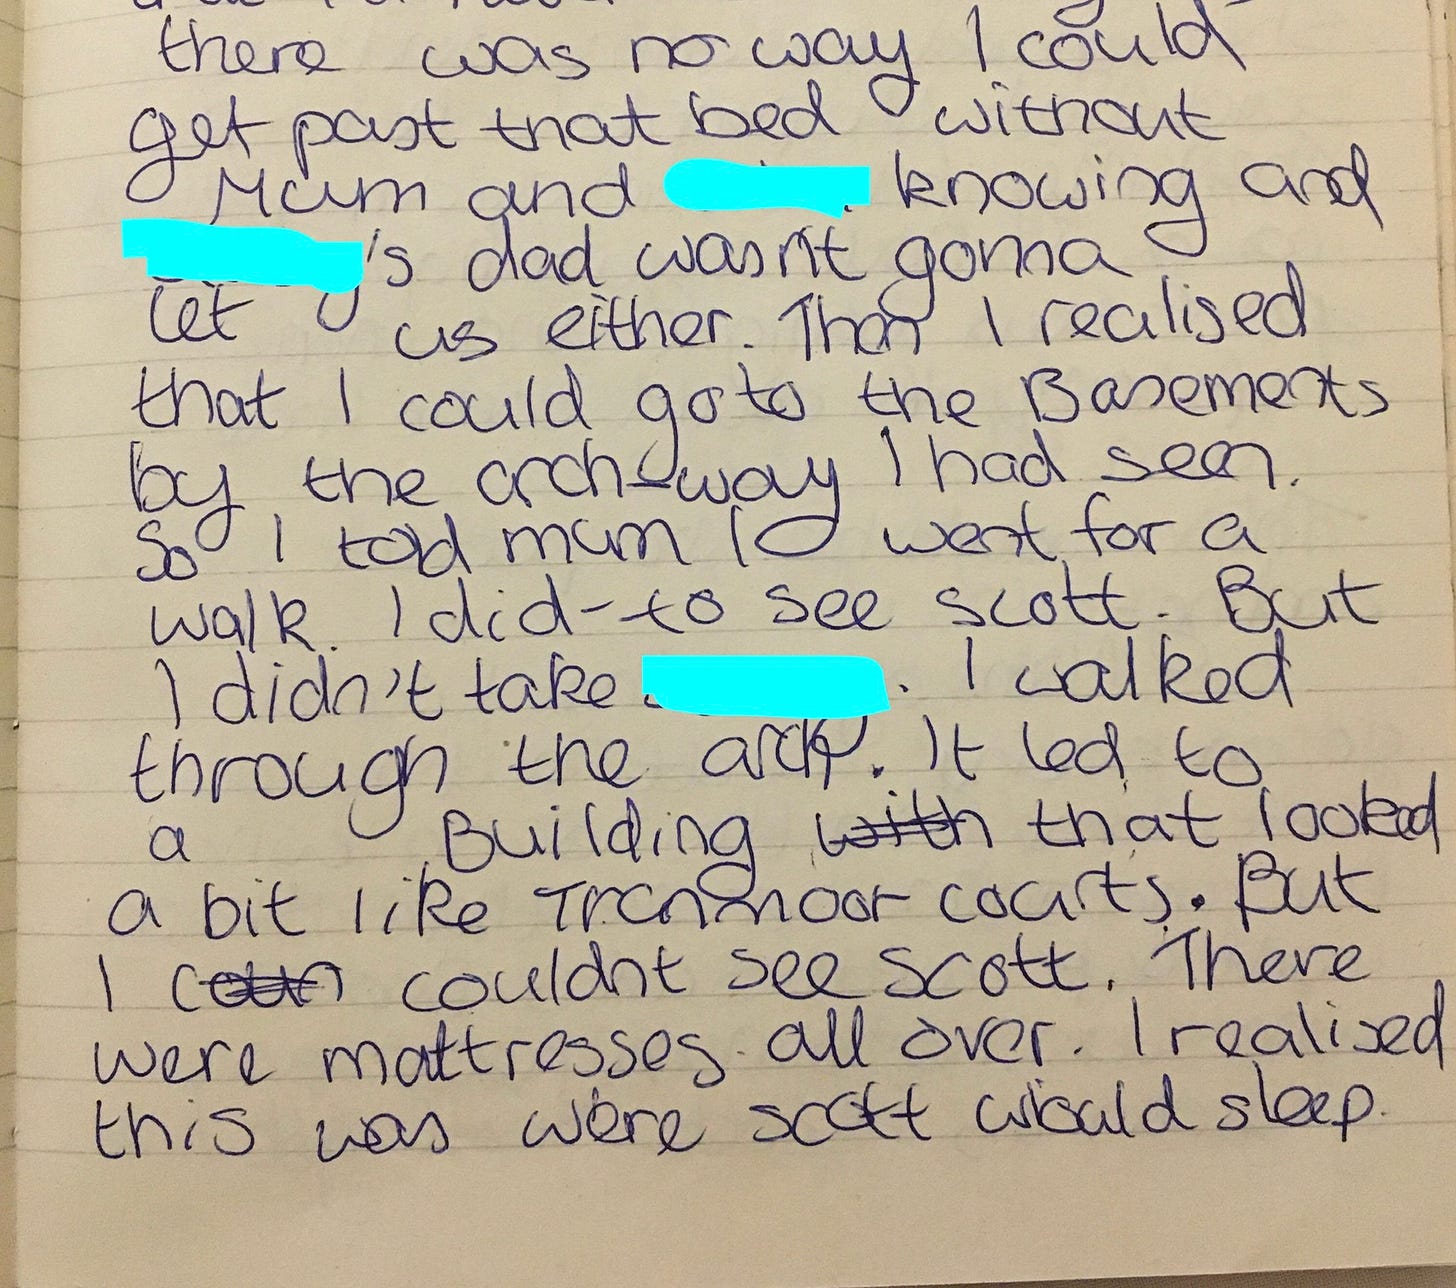 there was no way I could
get past that bed without
Mum and knowing and
's dad wasn't gonna
let us either. Then I realised
that I could go to the Basements
by the arch-way I had seen.
So I told mum I went for a
walk. I did - to see scott. But
I didn't take . I walked
through the arch. It led to
a Building with that looked
a bit like courts. But
I couldnt see scott. There
were mattresses all over. I realised
this was were scott would sleep.